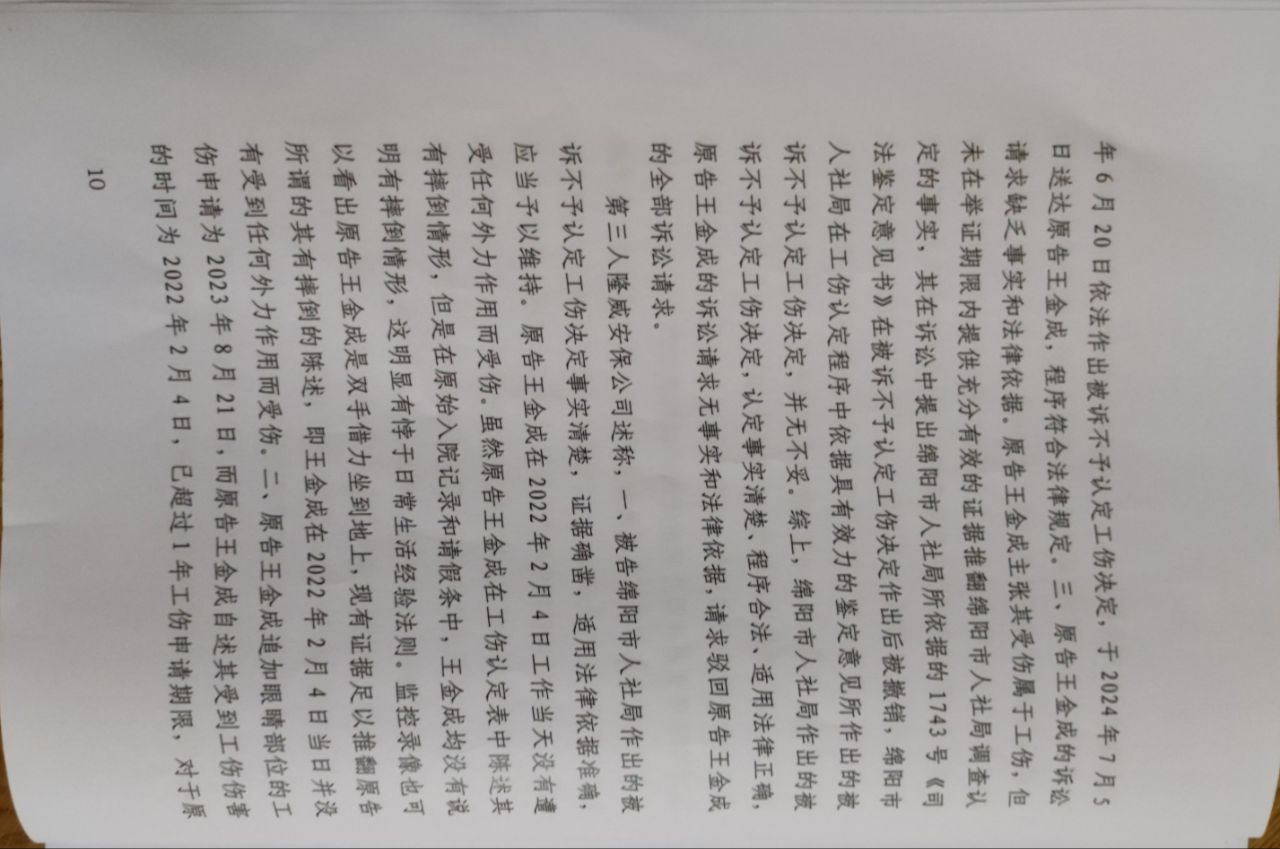 年 6 月 20 日依法作出被诉不予认定工伤决定，于 2024 年 7 月 5
日送达原告王金成，程序符合法律规定。三、原告王金成的诉讼
请求缺乏事实和法律依据。原告王金成主张其受伤属于工伤，但
未在举证期限内提供充分有效的证据推翻绵阳市人社局调查认
定的事实，其在诉讼中提出绵阳市人社局所依据的 1743 号《司
法鉴定意见书》在被诉不予认定工伤决定作出后被撤销，绵阳市
人社局在工伤认定程序中依据具有效力的鉴定意见所作出的被
诉不予认定工伤决定，并无不妥。综上，绵阳市人社局作出的被
诉不予认定工伤决定，认定事实清楚、程序合法、适用法律正确，
原告王金成的诉讼请求无事实和法律依据，请求驳回原告王金成
的全部诉讼请求。
第三人隆威安保公司述称，一、被告绵阳市人社局作出的被
诉不予认定工伤决定事实清楚，证据确凿，适用法律依据准确，
应当予以维持。原告王金成在 2022 年 2 月 4 日工作当天没有遭
受任何外力作用而受伤。虽然原告王金成在工伤认定表中陈述其
有摔倒情形，但是在原始入院记录和请假条中，王金成均没有说
明有摔倒情形，这明显有悖于日常生活经验法则。监控录像也可
以看出原告王金成是双手借力坐到地上，现有证据足以推翻原告
所谓的其有摔倒的陈述，即王金成在 2022 年 2 月 4 日当日并没
有受到任何外力作用而受伤。二、原告王金成追加眼睛部位的工
伤申请为 2023 年 8 月 21 日，而原告王金成自述其受到工伤伤害
的时间为 2022 年 2 月 4 日，已超过 1 年工伤申请期限，对于原
10